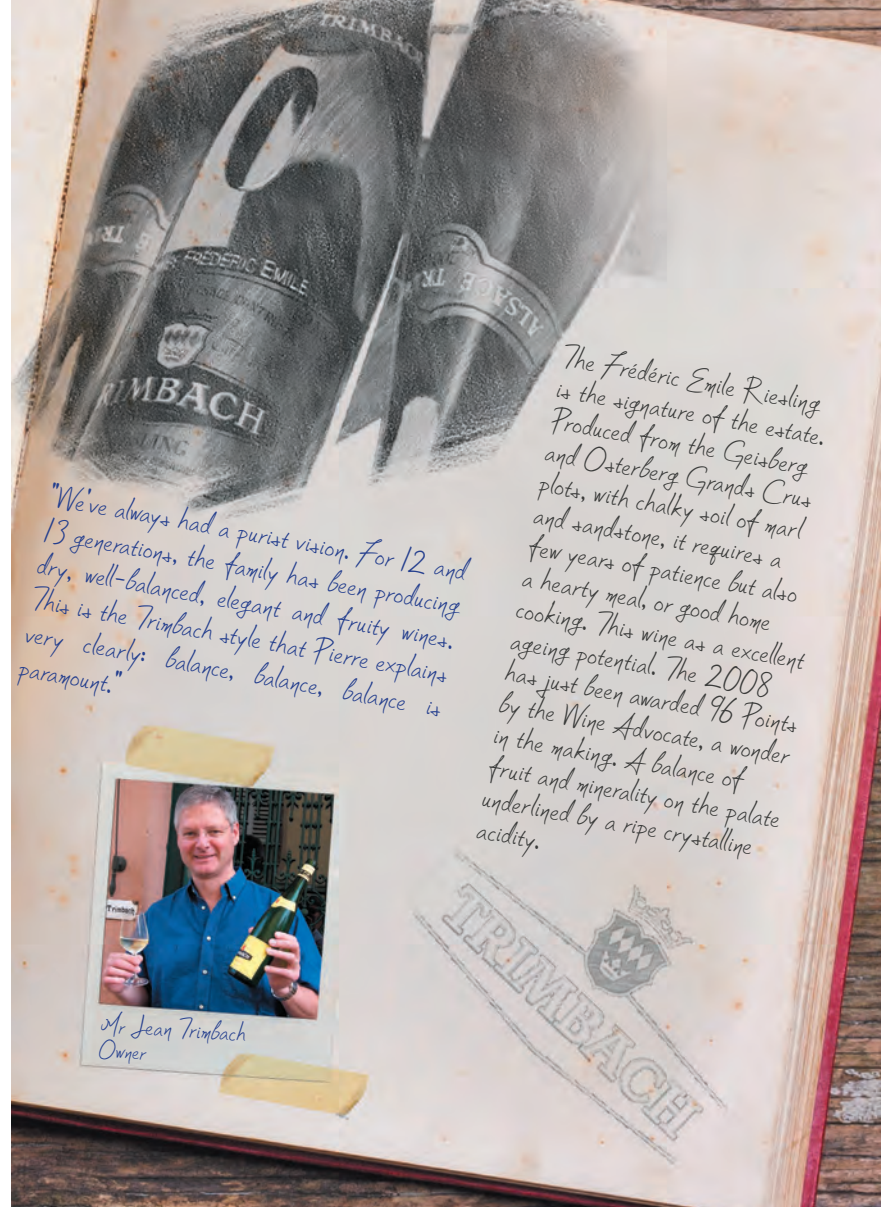 TRIMBACH
ALSACE TR
FREDERIC EMILE
TRIMBACH
"We've always had a purist vision. For 12 and
13 generations, the family has been producing
dry, well-balanced, elegant and fruity wines.
This is the Trimbach style that Pierre explains
very clearly: balance, balance, balance is
paramount."
The Frédéric Emile Riesling
is the signature of the estate.
Produced from the Geisberg
and Osterberg Grands Crus
plots, with chalky soil of marl
and sandstone, it requires a
few years of patience but also
a hearty meal, or good home
cooking. This wine as a excellent
ageing potential. The 2008
has just been awarded 96 Points
by the Wine Advocate, a wonder
in the making. A balance of
fruit and minerality on the palate
underlined by a ripe crystalline
acidity.
Trimbach
Mr Jean Trimbach
Owner
TRIMBACH